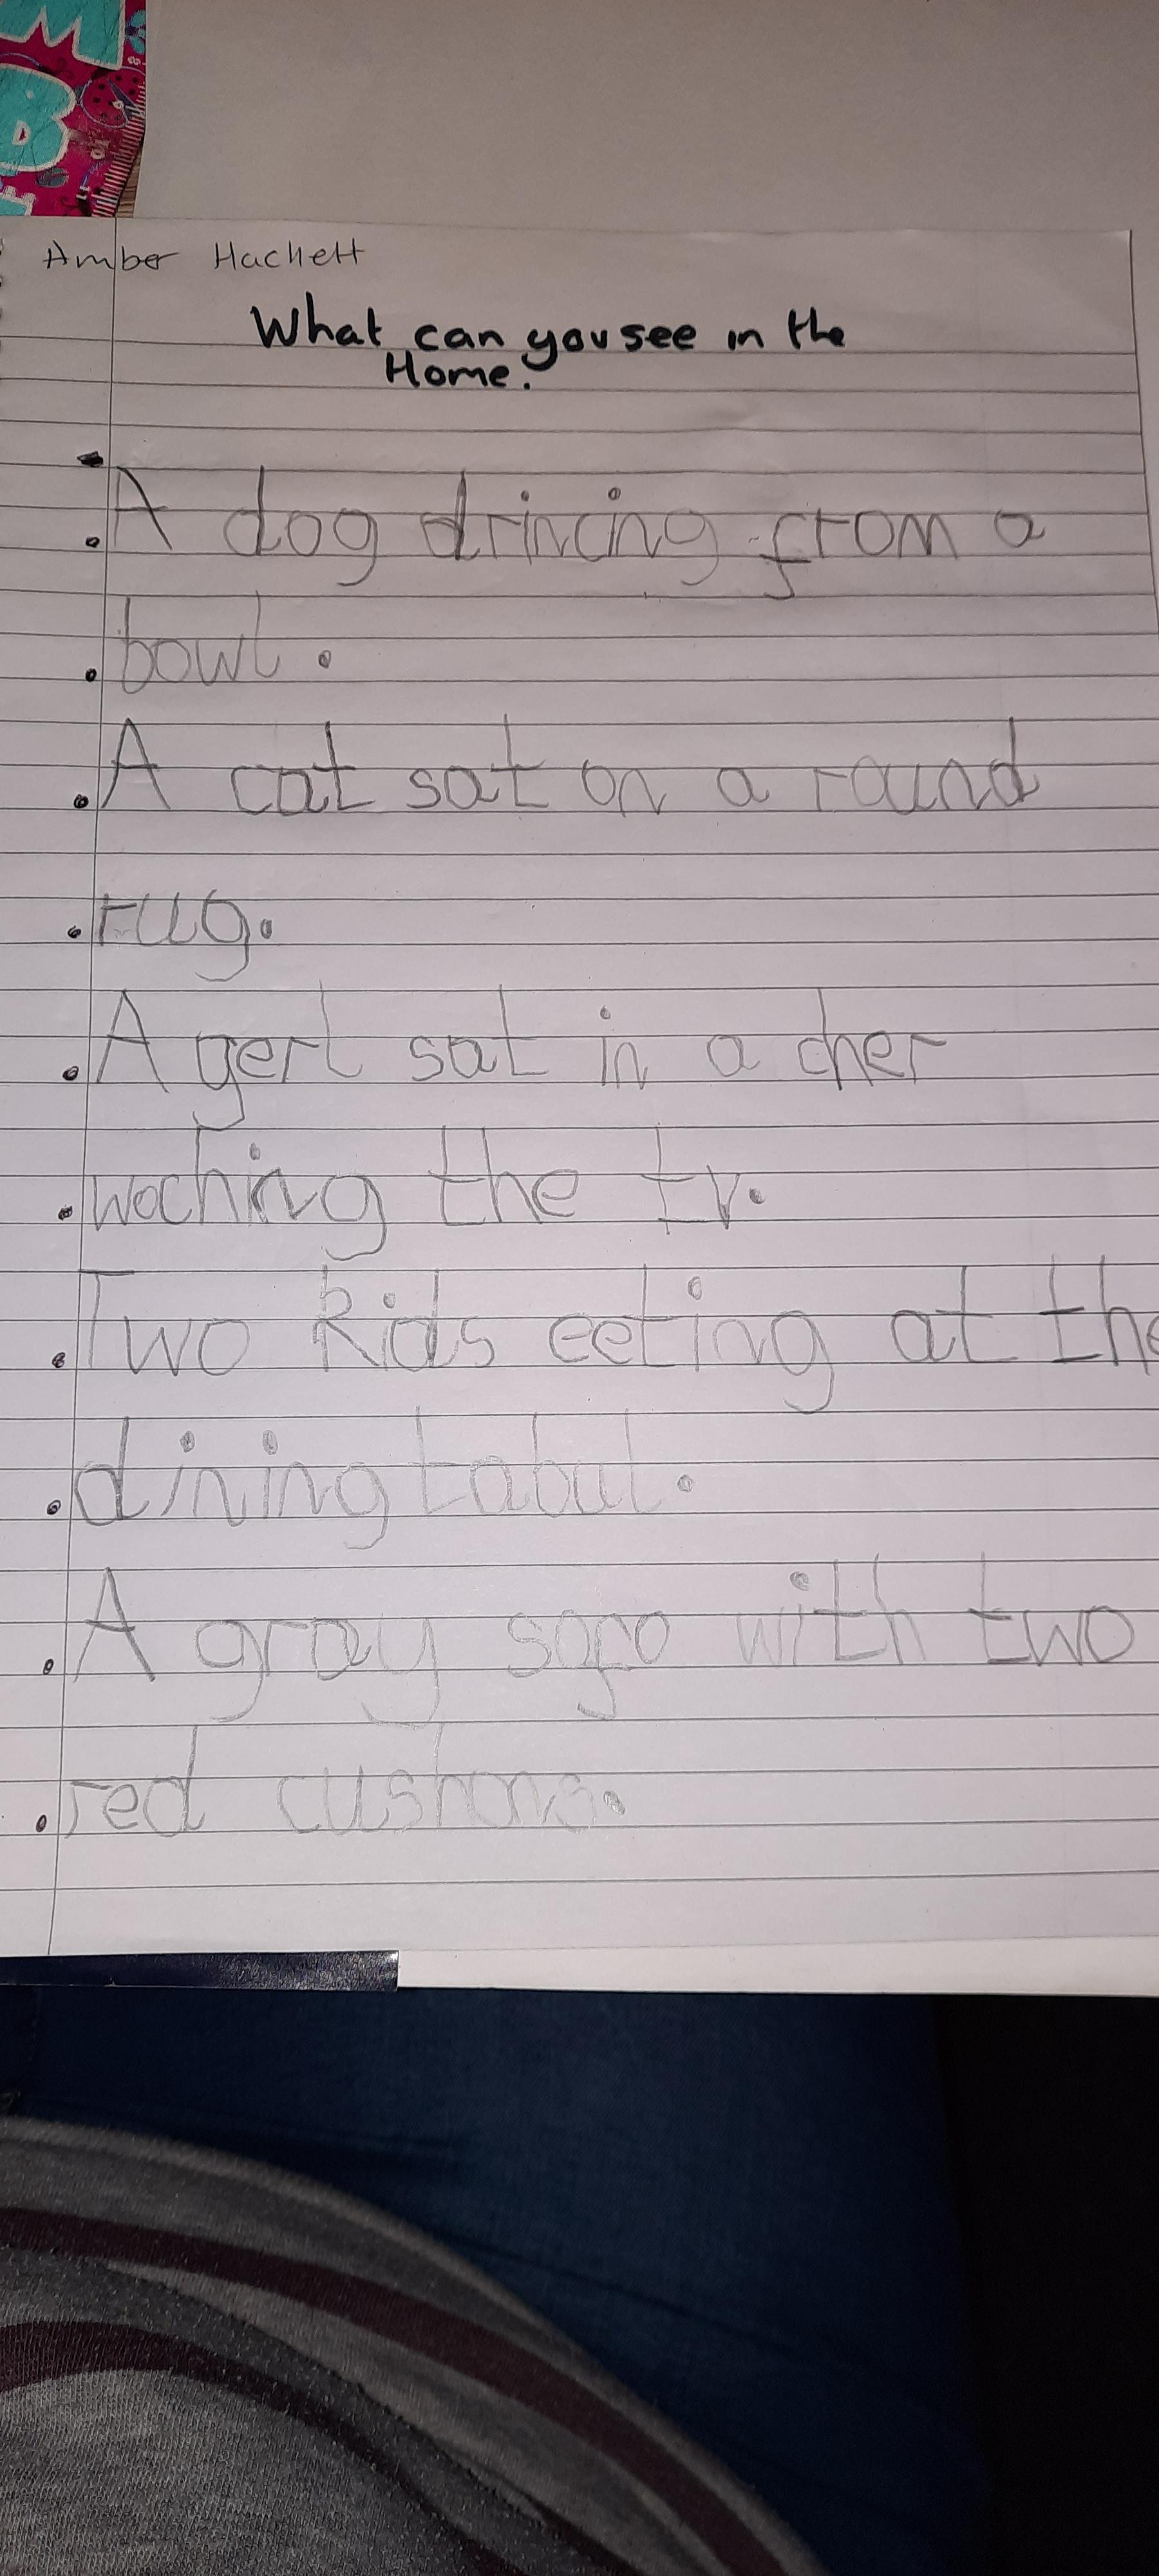 M
B
Amber Hackett
What can you see in the
Home.
A dog drincing from a
bowl.
A cat sat on a round
rug.
A gerl sat in a cher
woching the tv.
Two kids eeting at the
dining tabul.
A gray sofo with two
red cushons.